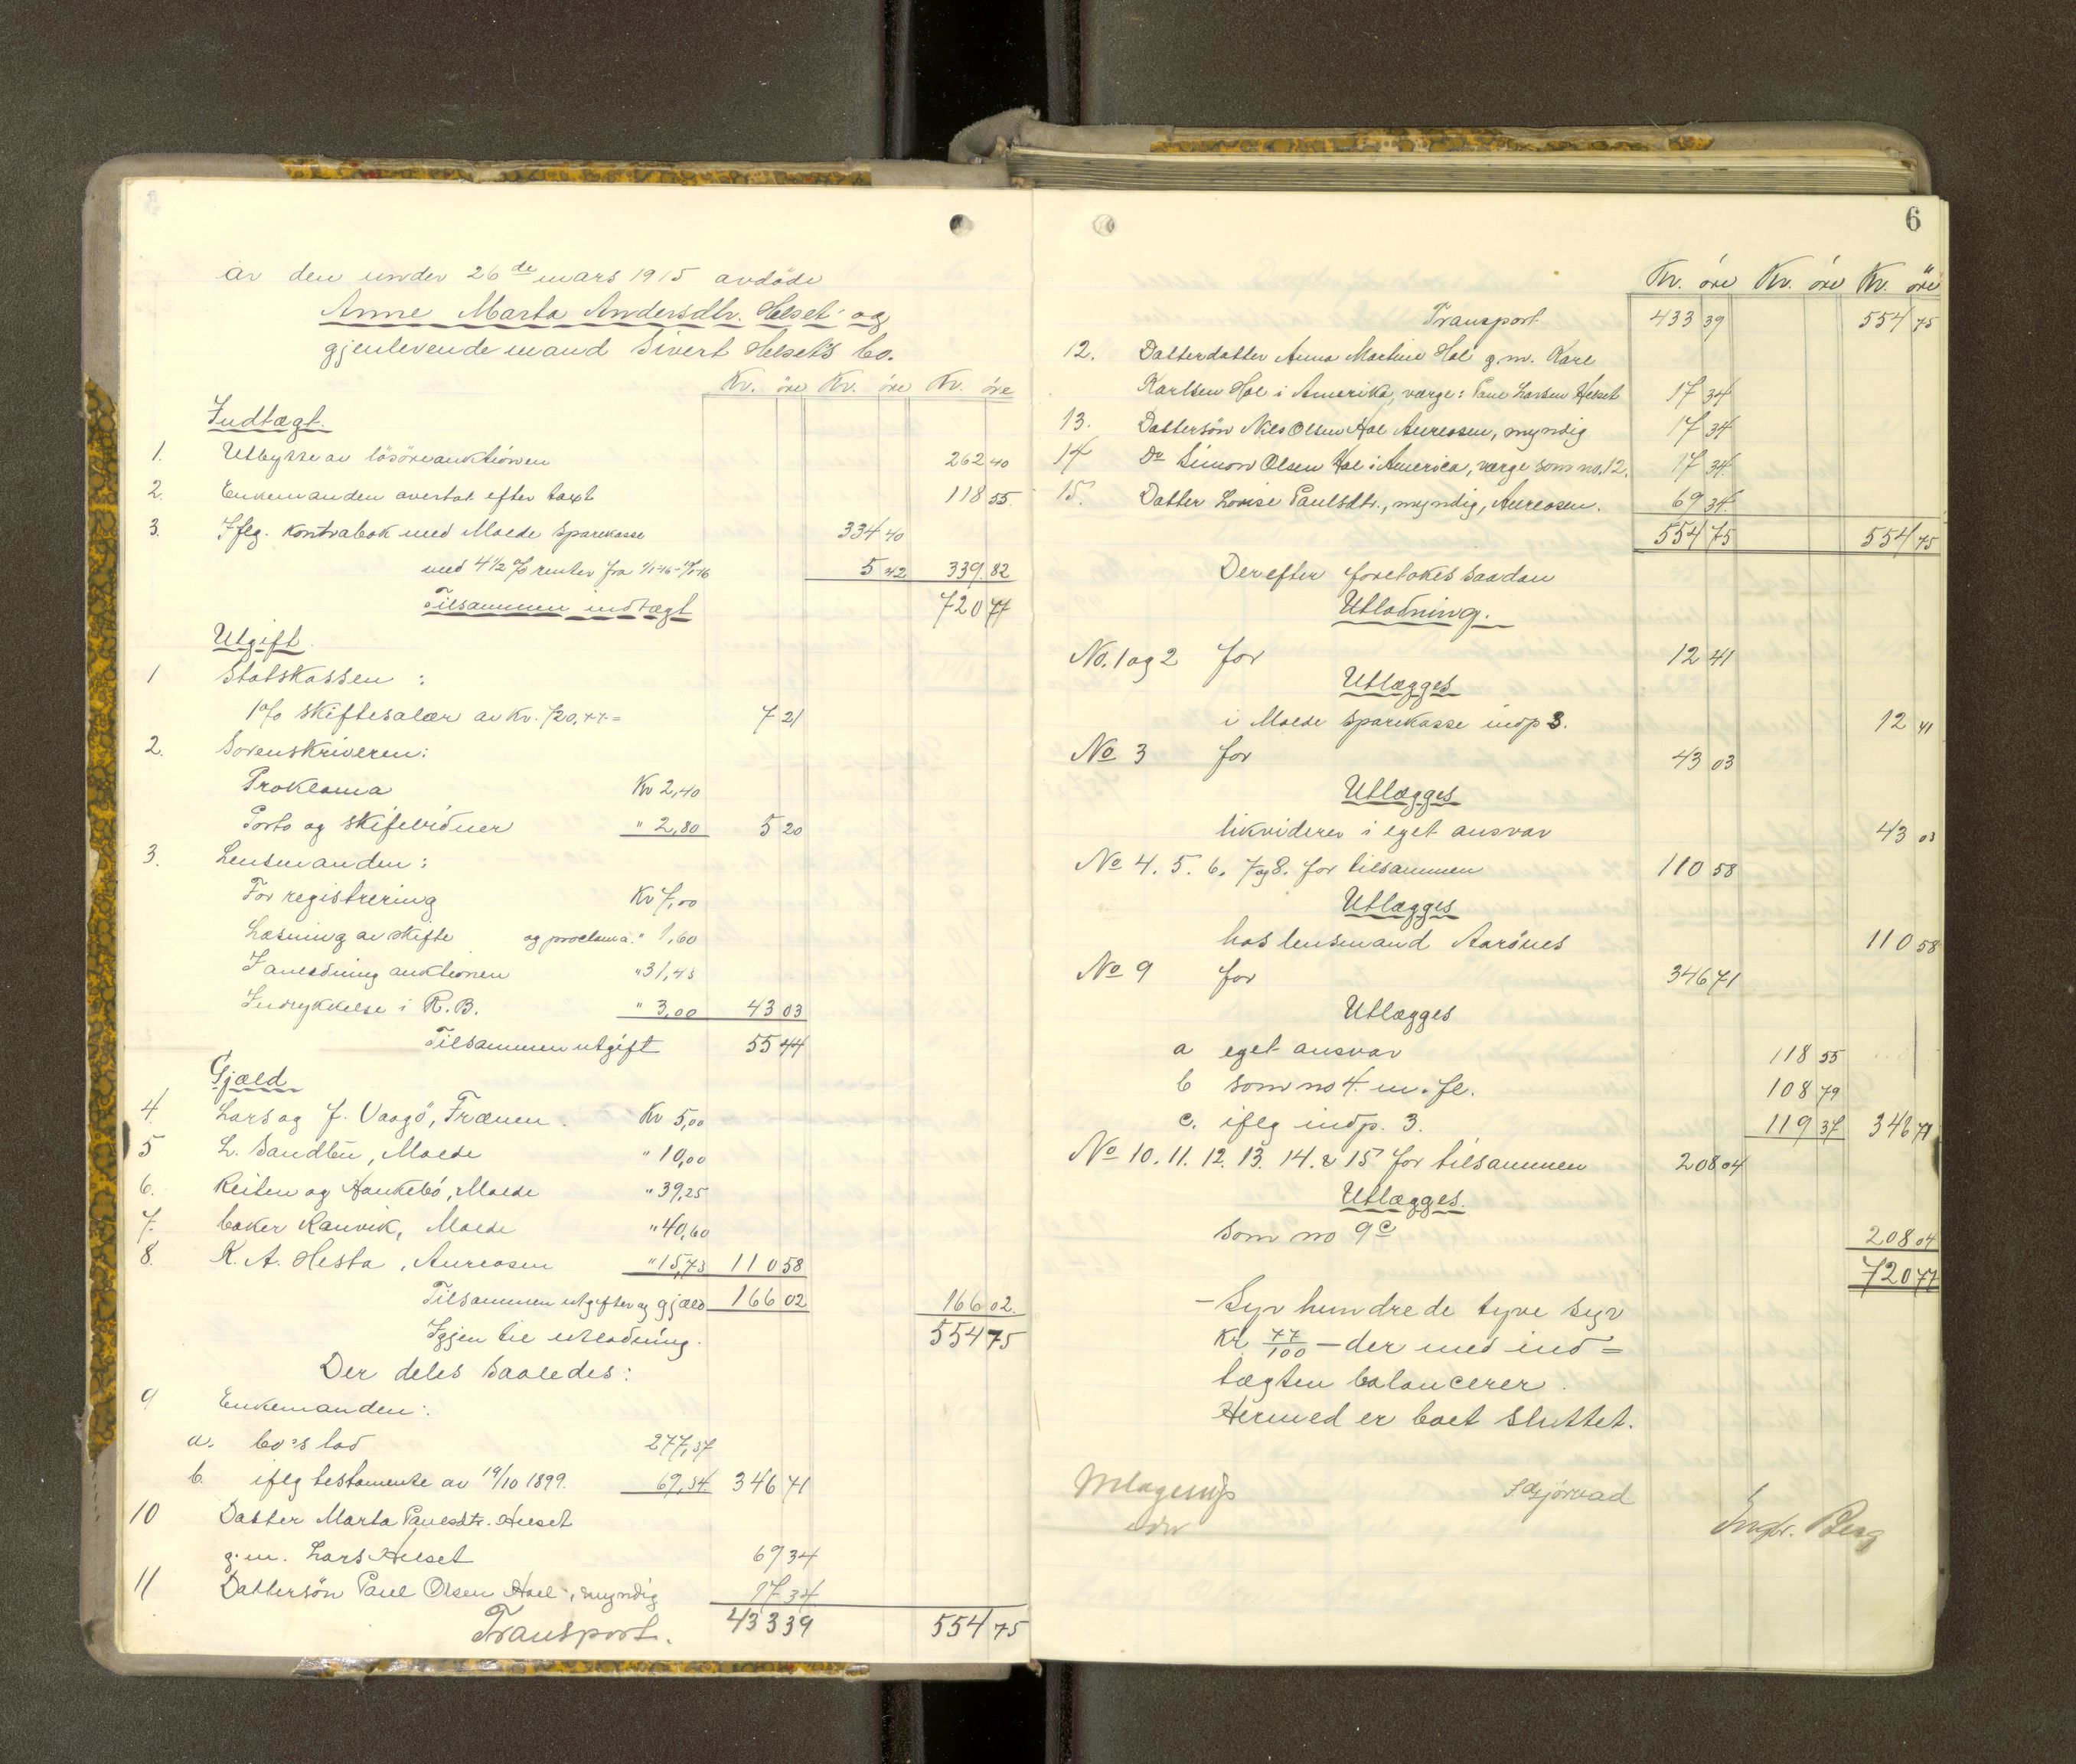 av den under 26de mars 1915 avdöde
Anne Marta Andersdtr. Helset og
gjenlevende mand Sivert Helset's bo.
Kr. öre Kr. öre Kr. öre
Indtægt.
1. Utbytte av lösöreauktionen 262 40
2. Enkemanden overtat efter taxt 118 55
3. Iflg. Kontrabok med Molde Sparekasse 334 40
med 4 1/2 % renter fra 5 42 339 82
Tilsammen indtægt 720 77
Utgift.
1 Statskassen:
1% skiftesalær av Kr. 720,77 = 7 21
2. Sorenskriveren:
Proklama Kr 2,40
Porto og skiftevidner " 2,80 5 20
3. Lensmanden:
For registrering Kr 7,00
Læsning av skifte og proclama " 1,60
I anledning auktionen " 31,43
Indrykkelse i R.B. " 3,00 43 03
Tilsammen utgift 55 44
Gjæld
4 Lars og J. Vaagö, Frænen. Kr 5,00
5 L. Sandbu, Molde " 10,00
6. Reiten og Haukebö, Molde " 39,25
7. baker Ranvik, Molde " 40,60
8. K. A. Hesta, Aureosen " 15,73 110 58
Tilsammen utgifter og gjæld 166 02 166 02
Igjen til utlodning. 554 75
Der deles saaledes:
9 Enkemanden:
a. bo's lod 277,37
b. iflg testamente av 19/10 1899. 69,34 346 71
10 Datter Marta Paulsdtr. Helset
g.m. Lars Helset 69 34
11 Dattersön Paul Olsen Hol, myndig 17 34
Transport. 433 39 554 75
6
Kr. öre Kr. öre Kr. öre
Transport 433 39 554 75
12. Datterdatter Anna Martine Hol g.m. Karl
Karlsen Hol i Amerika, værge: Paul Larsen Helset 17 34
13. Dattersön Nils Olsen Hol Aureosen, myndig 17 34
14 Do Simon Olsen Hol i America, værge som no. 12. 17 34
15. Datter Lovise Paulsdtr., myndig, Aureosen. 69 34
554 75 554 75
Derefter foretokes saadan
Utlodning.
No. 1 og 2 for 12 41
Utlægges
i Molde Sparekasse indp 3. 12 41
No 3 for 43 03
Utlægges
likviderer i eget ansvar 43 03
No 4. 5. 6. 7 og 8. for tilsammen 110 58
Utlægges
hos lensmand Aarönes 110 58
No 9 for 346 71
Utlægges
a eget ansvar 118 55
b som no 4. m. fl. 108 79
c. iflg indp. 3. 119 37 346 71
No 10. 11. 12. 13. 14. & 15 for tilsammen 208 04
Utlægges.
Som no 9c 208 04
720 77
- Syv hundrede tyve syv
Kr 77/100 - der med ind=
tægten balancerer.
Hermed er boet sluttet.
Ingbr. Berg